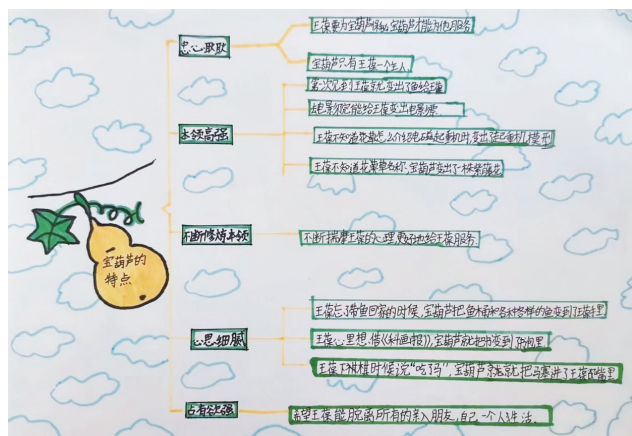 宝葫芦的
特点
忠心耿耿
王葆要为宝葫芦保秘,宝葫芦才能为他服务
宝葫芦只有王葆一个主人.
本领高强
第一次见到王葆就变出了鱼给王葆
去电影院能给王葆变出电影票.
王葆不知道花草怎么介绍电磁起重机时,变出
模型
王葆不知道花草名称,宝葫芦变出了一株
不断修炼本领
不断揣摩王葆的心理,更好地给王葆服务.
心思细腻
王葆忘了带鱼回家的时候,宝葫芦把鱼桶和各种各样的鱼变到了王葆手里
王葆心里想借《科学画报》,宝葫芦就把书变到了书包里
王葆下棋时候说“吃了吗”,宝葫芦就把马塞进了王葆嘴里
占有欲强
希望王葆能脱离所有的亲人朋友,自己一个人生活.